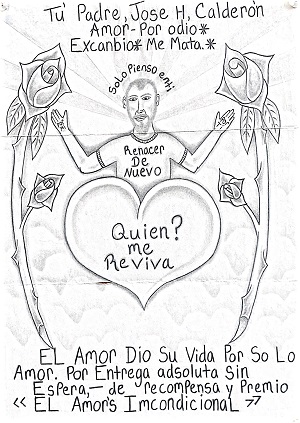 Tú Padre, Jose H, Calderón
Amor-Por odio*
Excanbio* Me Mata.*
Solo Pienso enti
Renacer
De
Nuevo
Quien?
me
Reviva
EL Amor Dio Su Vida Por So Lo
Amor. Por Entrega adsoluta Sin
Espera,- de recompensa y Premio
<< EL Amor's Imcondicional >>